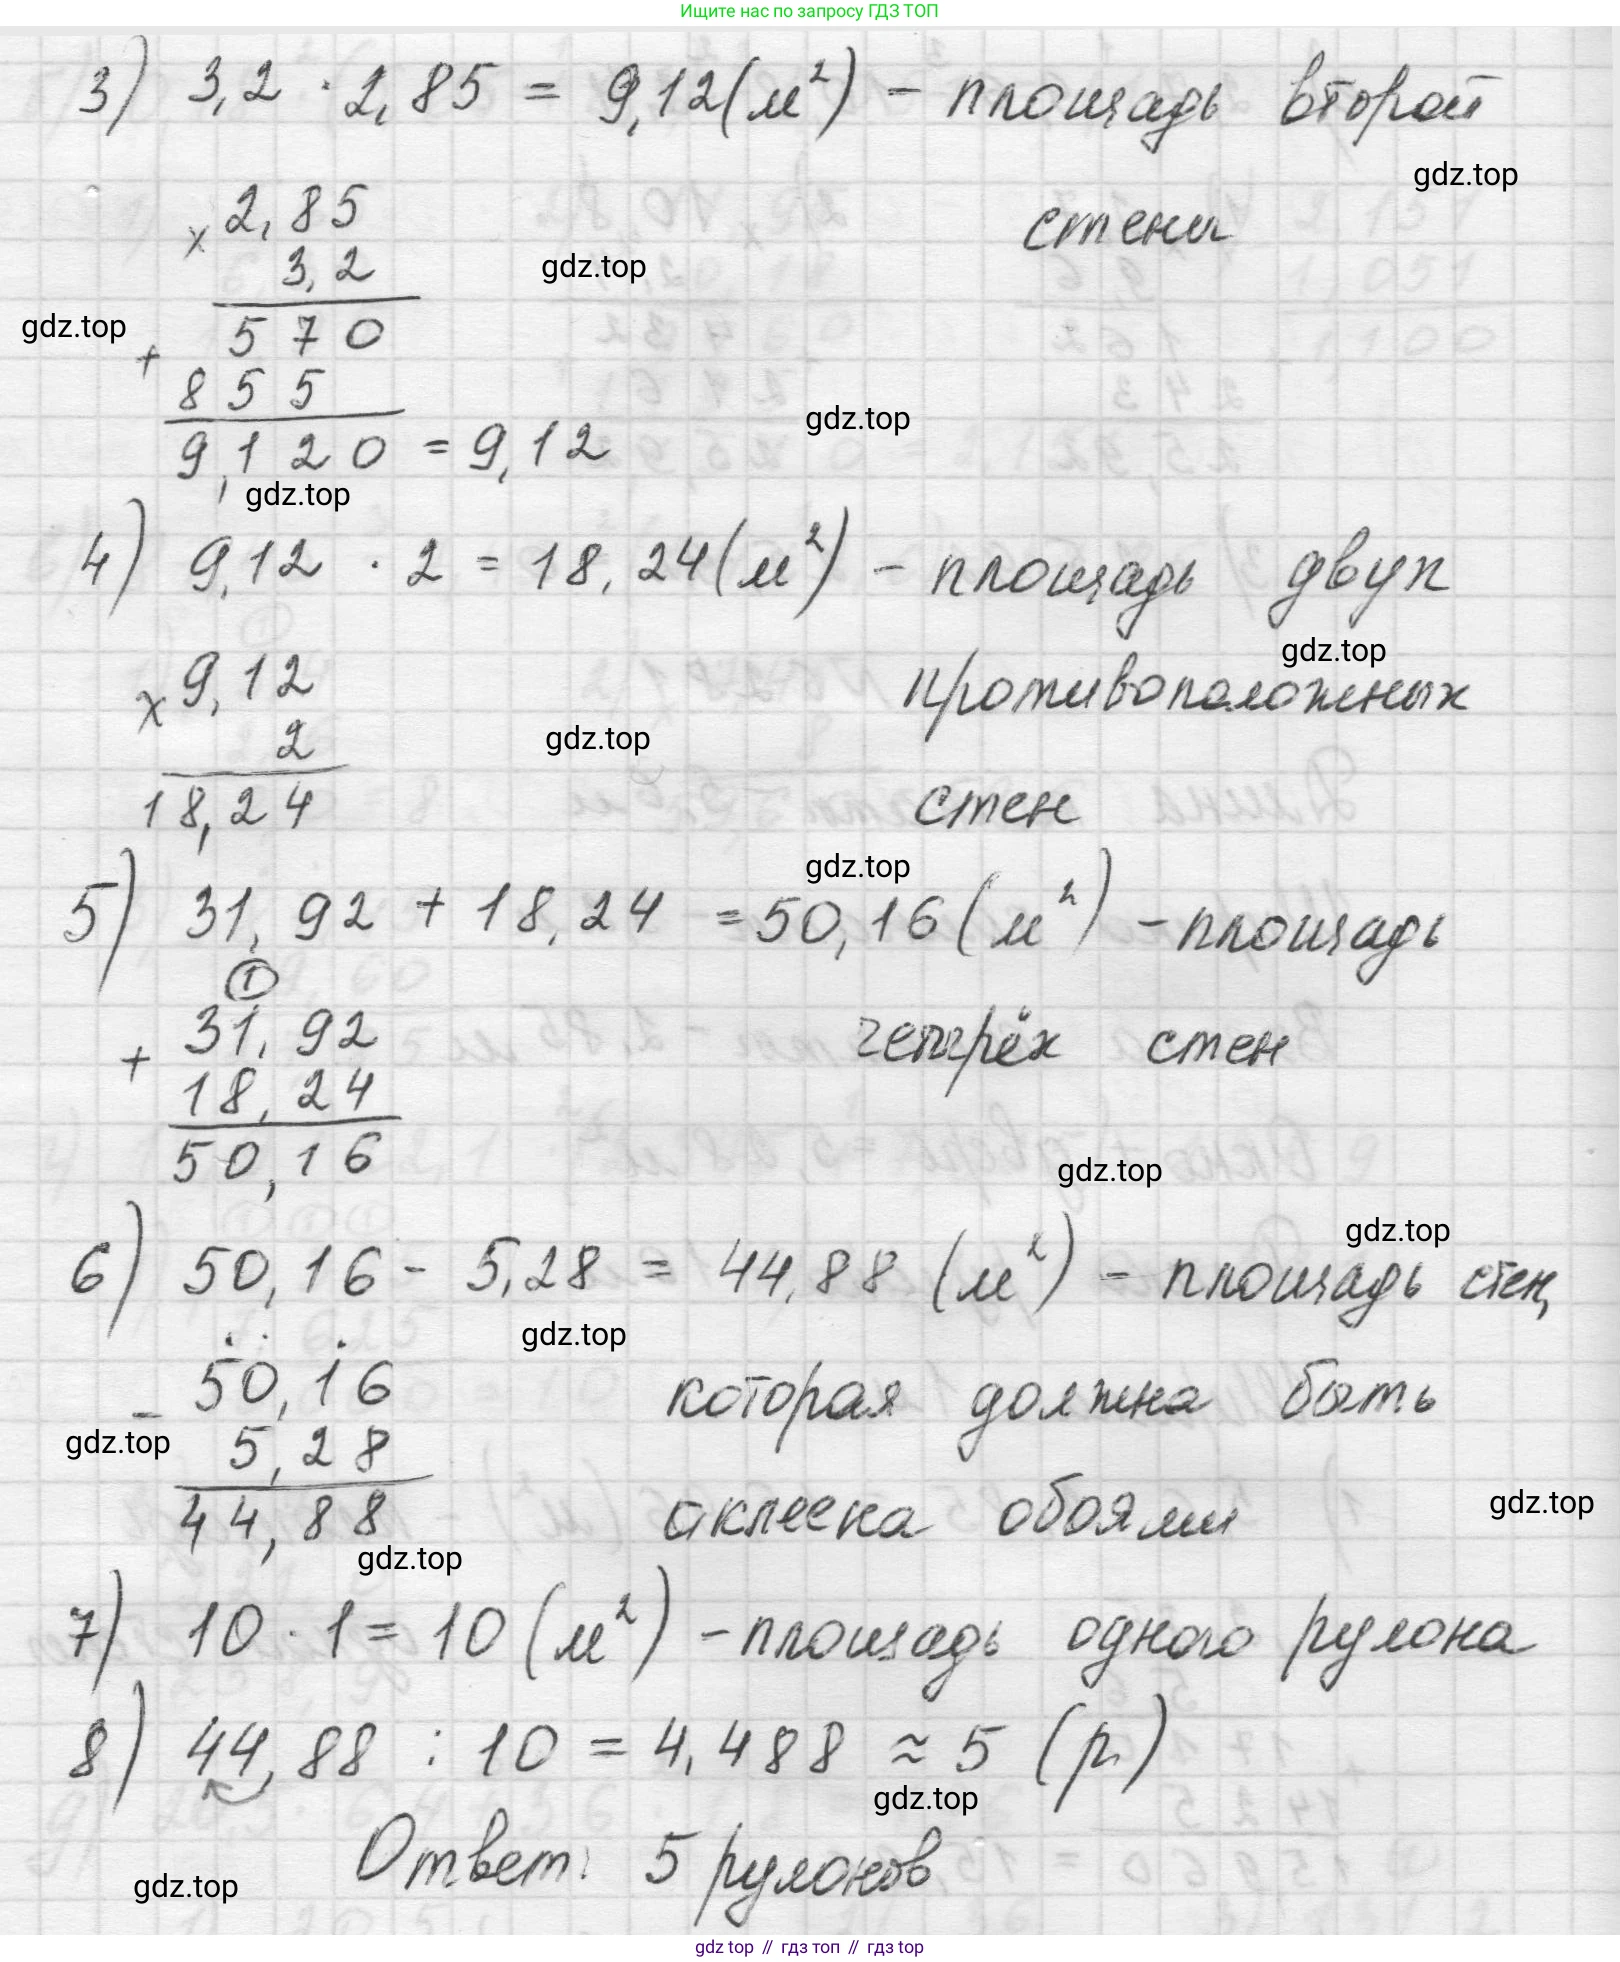 Ищите нас по запросу ГДЗ ТОП
3) 3,2 · 2,85 = 9,12 (м²) - площадь второй
gdz.top
× 2,85
стены
3,2
gdz.top
gdz.top
570
+
855
gdz.top
9,120 = 9,12
gdz.top
4) 9,12 · 2 = 18,24 (м²) - площадь двух
gdz.top
× 9,12
противоположных
2
gdz.top
18,24
стен
gdz.top
5) 31,92 + 18,24 = 50,16 (м²) - площадь
1
+ 31,92
четырёх стен
18,24
50,16
gdz.top
gdz.top
6) 50,16 - 5,28 = 44,88 (м²) - площадь стен,
gdz.top
- 50,16
которая должна быть
gdz.top
5,28
gdz.top
44,88
оклеена обоями
gdz.top
7) 10 · 1 = 10 (м²) - площадь одного рулона
8) 44,88 : 10 = 4,488 ≈ 5 (р.)
gdz.top
Ответ: 5 рулонов
gdz.top
gdz top // гдз топ // гдз top